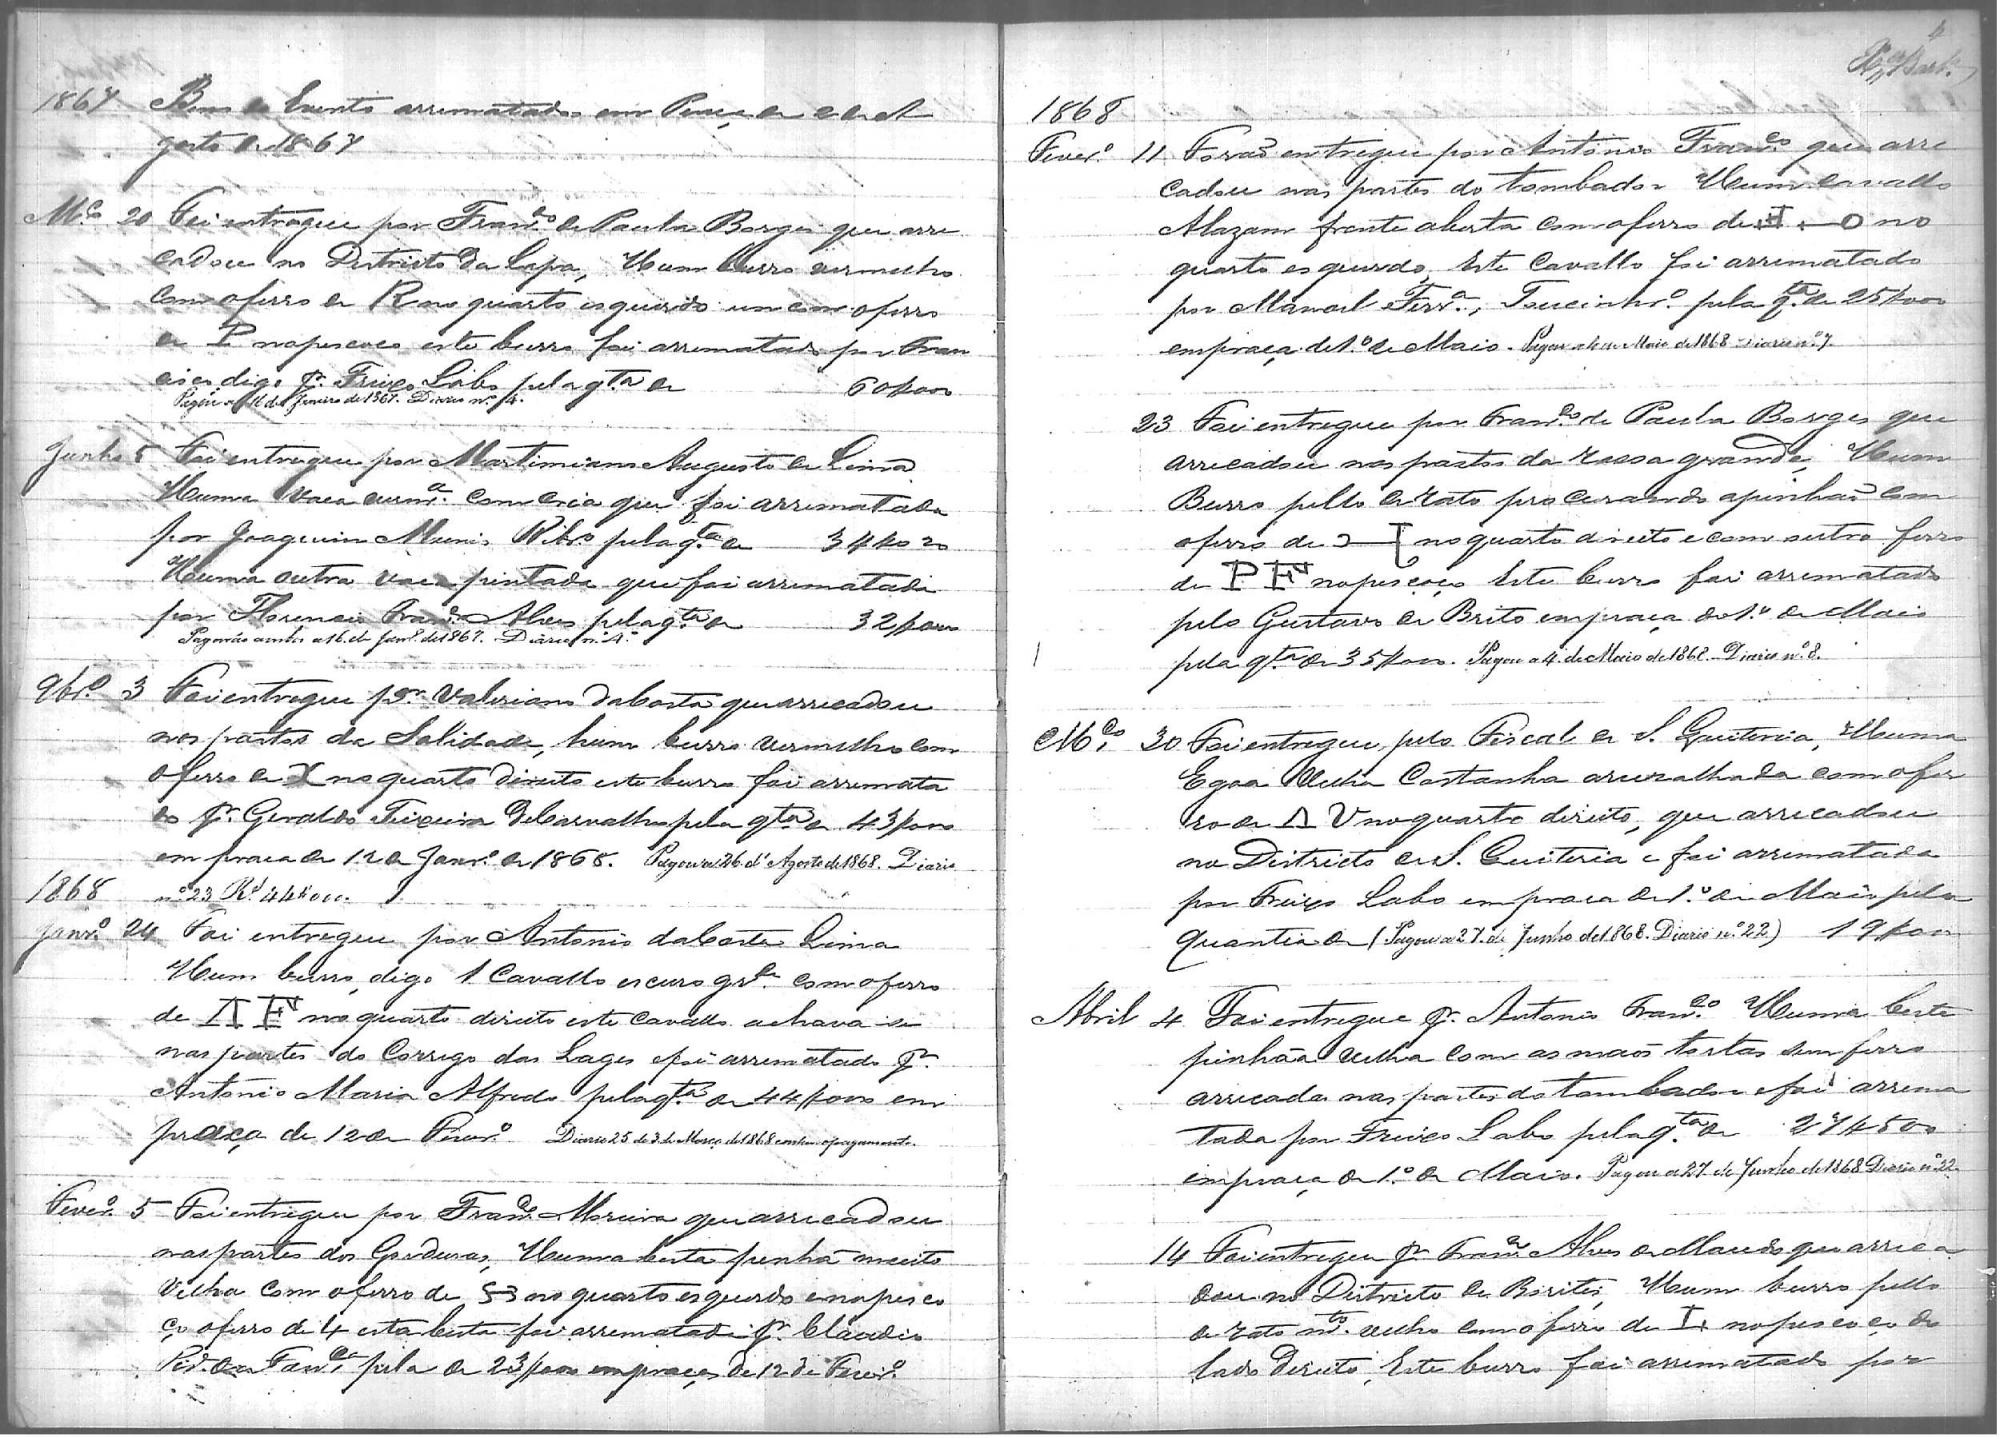 1867 Bens do Evento arrematados em Praça de 2 de A
gosto de 1867
Mço 20 Foi entregue por Franco de Paula Borges que arre
cadou no Districto da Lapa, Hum burro vermelho
com o ferro de R no quarto esquerdo um com o ferro
de P no pescoço este burro foi arrematado por Fran
cisco, digo pr. Freixo Lobo pela qta de 60$000
Pagou a 16 de Janeiro de 1867. Diario nº 4.
Junho 5 Foi entregue por Martimiano Augusto de Lima
Huma vaca verma. com cria que foi arrematada
por Joaquim Munis Ribro pela qta de 34$020
Huma outra vaca pintada que foi arrematada
por Florencio Franco Alves pela qta de 32$000
Pagarão ambos a 16 de Janro de 1867. Diario nº 4.
9brº 3 Foi entregue por Valeriano da Costa que arrecadou
nos pastos da Solidade, hum burro vermelho com
o ferro de X no quarto direito este burro foi arremata
do pr. Geraldo Teixeira de Carvalho pela qta de 43$000
em praça de 12 de Janrº de 1868. Pagou a 26 d'Agosto de 1868. Diario
nº 23 Rs 44$000.
1868
Janrº 24 Foi entregue por Antonio da Costa Lima
Hum burro, digo 1 Cavallo escuro gde. com o ferro
de A F no quarto direito este cavallo achava-se
nas partes do Corrego das Lages e foi arrematado pr.
Antonio Maria Alfredo pela qta de 44$000 em
praça de 12 de Feverº Diario 25 de 3 de Março de 1868 contem o pagamento.
Feverº 5 Foi entregue por Franco Moreira que arrecadou
nas partes dos Gorduras, Huma besta pinhã muito
velha com o ferro de no quarto esquerdo e no pesco
ço o ferro de 4 esta besta foi arrematada pr. Claudio
pela de 23$000 em praça de 12 de Feverº
4
1868
Feverº 11 Forão entregue por Antonio Franco que arre
cadou nas partes do tombador Hum cavallo
Alazam frente aberta com o ferro de no
quarto esquerdo, Este cavallo foi arrematado
por Manoel Ferra., Toucinhrº pela qta de 25$000
em praça de 1º de Maio. Pagou a 4 de Maio de 1868 Diario nº 7.
23 Foi entregue por Franco de Paula Borges que
arrecadou nos pastos da rossa grande, Hum
Burro pello de rato procurando apinhão com
o ferro de no quarto direito e com outro ferro
de P F no pescoço Este burro foi arrematado
pelo Gustavo de Brito em praça do 1º de Maio
pela qta de 35$000. Pagou a 4 de Maio de 1868. Diario nº 8.
Mço 30 Foi entregue, pelo Fiscal de S. Quiteria, Huma
Egoa velha Castanha com o fer
ro de A V no quarto direito, que arrecadou
no Districto de S. Quiteria e foi arrematada
por Freixo Lobo em praça de 1º de Maio pela
quantia de (Pagou a 27 de Junho de 1868. Diario nº 22) 19$000
Abril 4 Foi entregue pr. Antonio Franco Huma besta
pinhãa velha com as mãos tortas sem ferro
arrecada nas partes do tombador e foi arrema
tada por Freixo Lobo pela qta de 27$500
em praça de 1º de Maio. Pagou a 27 de Junho de 1868 Diario nº 22.
14 Foi entregue pr. Franco Alves de Macedo que arreca
dou no Districto de Biritis, Hum burro pello
de rato mto. velho com o ferro de L no pescoço do
lado direito, Este burro foi arrematado por